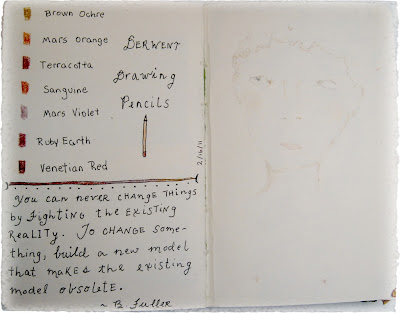 Brown Ochre
Mars Orange
Terracotta
Sanguine
Mars Violet
Ruby Earth
Venetian Red
Derwent
Drawing
Pencils
2/16/11
You can never change things
by fighting the existing
reality. To change some-
thing, build a new model
that makes the existing
model obsolete.
~ B. Fuller